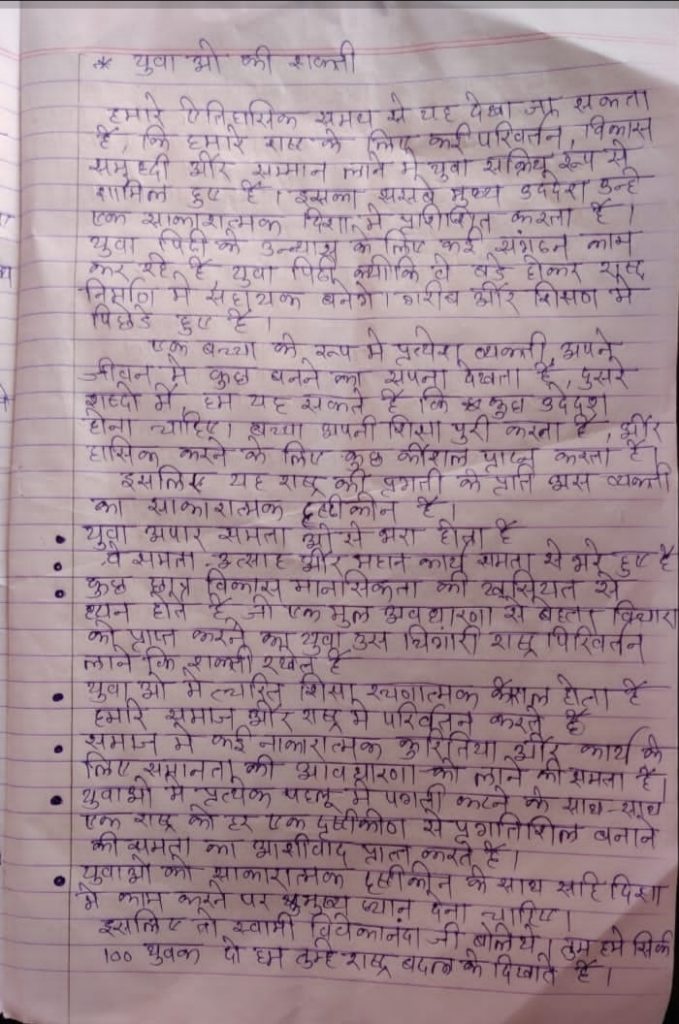 * युवा ओ की शक्ती
हमारे ऐतिहासिक समय से यह देखा जा सकता
है, कि हमारे राष्ट्र के लिए कई परिवर्तन, विकास
समृध्दी और सम्मान लाने मे युवा सक्रिय रूप से
शामिल हुए है। इसका सबसे मुख्य उददेश उन्हे
एक साकारात्मक दिशा मे प्रशिक्षित करता है।
युवा पिढी के उन्नयान के लिए कई संगठन काम
कर रहे है युवा पिढी क्योकि वे बडे होकर राष्ट्र
निर्माण मे सहायक बनेगे। गरीब और शिक्षण मे
पिछडे हुए है।
एक बच्चा के रूप मे प्रत्येक व्यक्ती अपने
जीवन मे कुछ बनने का सपना देखता है, दुसरे
शब्दो मे, हम यह सकते है कि कुछ उददेश
होना चाहिए। बच्चा अपनी शिक्षा पुरी करता है, और
हासिक करने के लिए कुछ कौशल प्राप्त करता है।
इसलिए यह राष्ट्र की प्रगती के प्रति अस व्यक्ती
का साकारात्मक दृष्टीकोन है।
• युवा अपार क्षमता ओ से भरा होता है
• वे क्षमता उत्साह और महान कार्य क्षमता से भरे हुए है
• कुछ छात्र विकास मानसिकता की खासियत से
होते है जो एक मुल अवधारणा से बेहतर विचारा
को प्राप्त करने का युवा उस चिंगारी राष्ट्र परिवर्तन
लाने कि शक्ती रखते है
• युवा ओ मे त्वरित शिक्षा रचनात्मक कौशल होता है
हमारे समाज और राष्ट्र मे परिवर्तन करते है
• समाज मे कई नाकारात्मक कुरितिया और कार्य के
लिए समानता की अवधारणा को लाने की क्षमता है।
• युवाओ मे प्रत्येक पहलू मे पगती करने के साथ-साथ
एक राष्ट्र को हर एक दृष्टीकोण से प्रगतिशिल बनाने
की क्षमता का आशीर्वाद प्राप्त करते है।
• युवाओ को साकारात्मक दृष्टीकोन के साथ सहि दिशा
मे काम करने पर मुख्य ध्यान देना चाहिए।
इसलिए तो स्वामी विवेकानंदा जी बोलेथे। तुम हमे सिर्फ
100 युवक दो हम तुम्हे राष्ट्र बदल के दिखाते है।